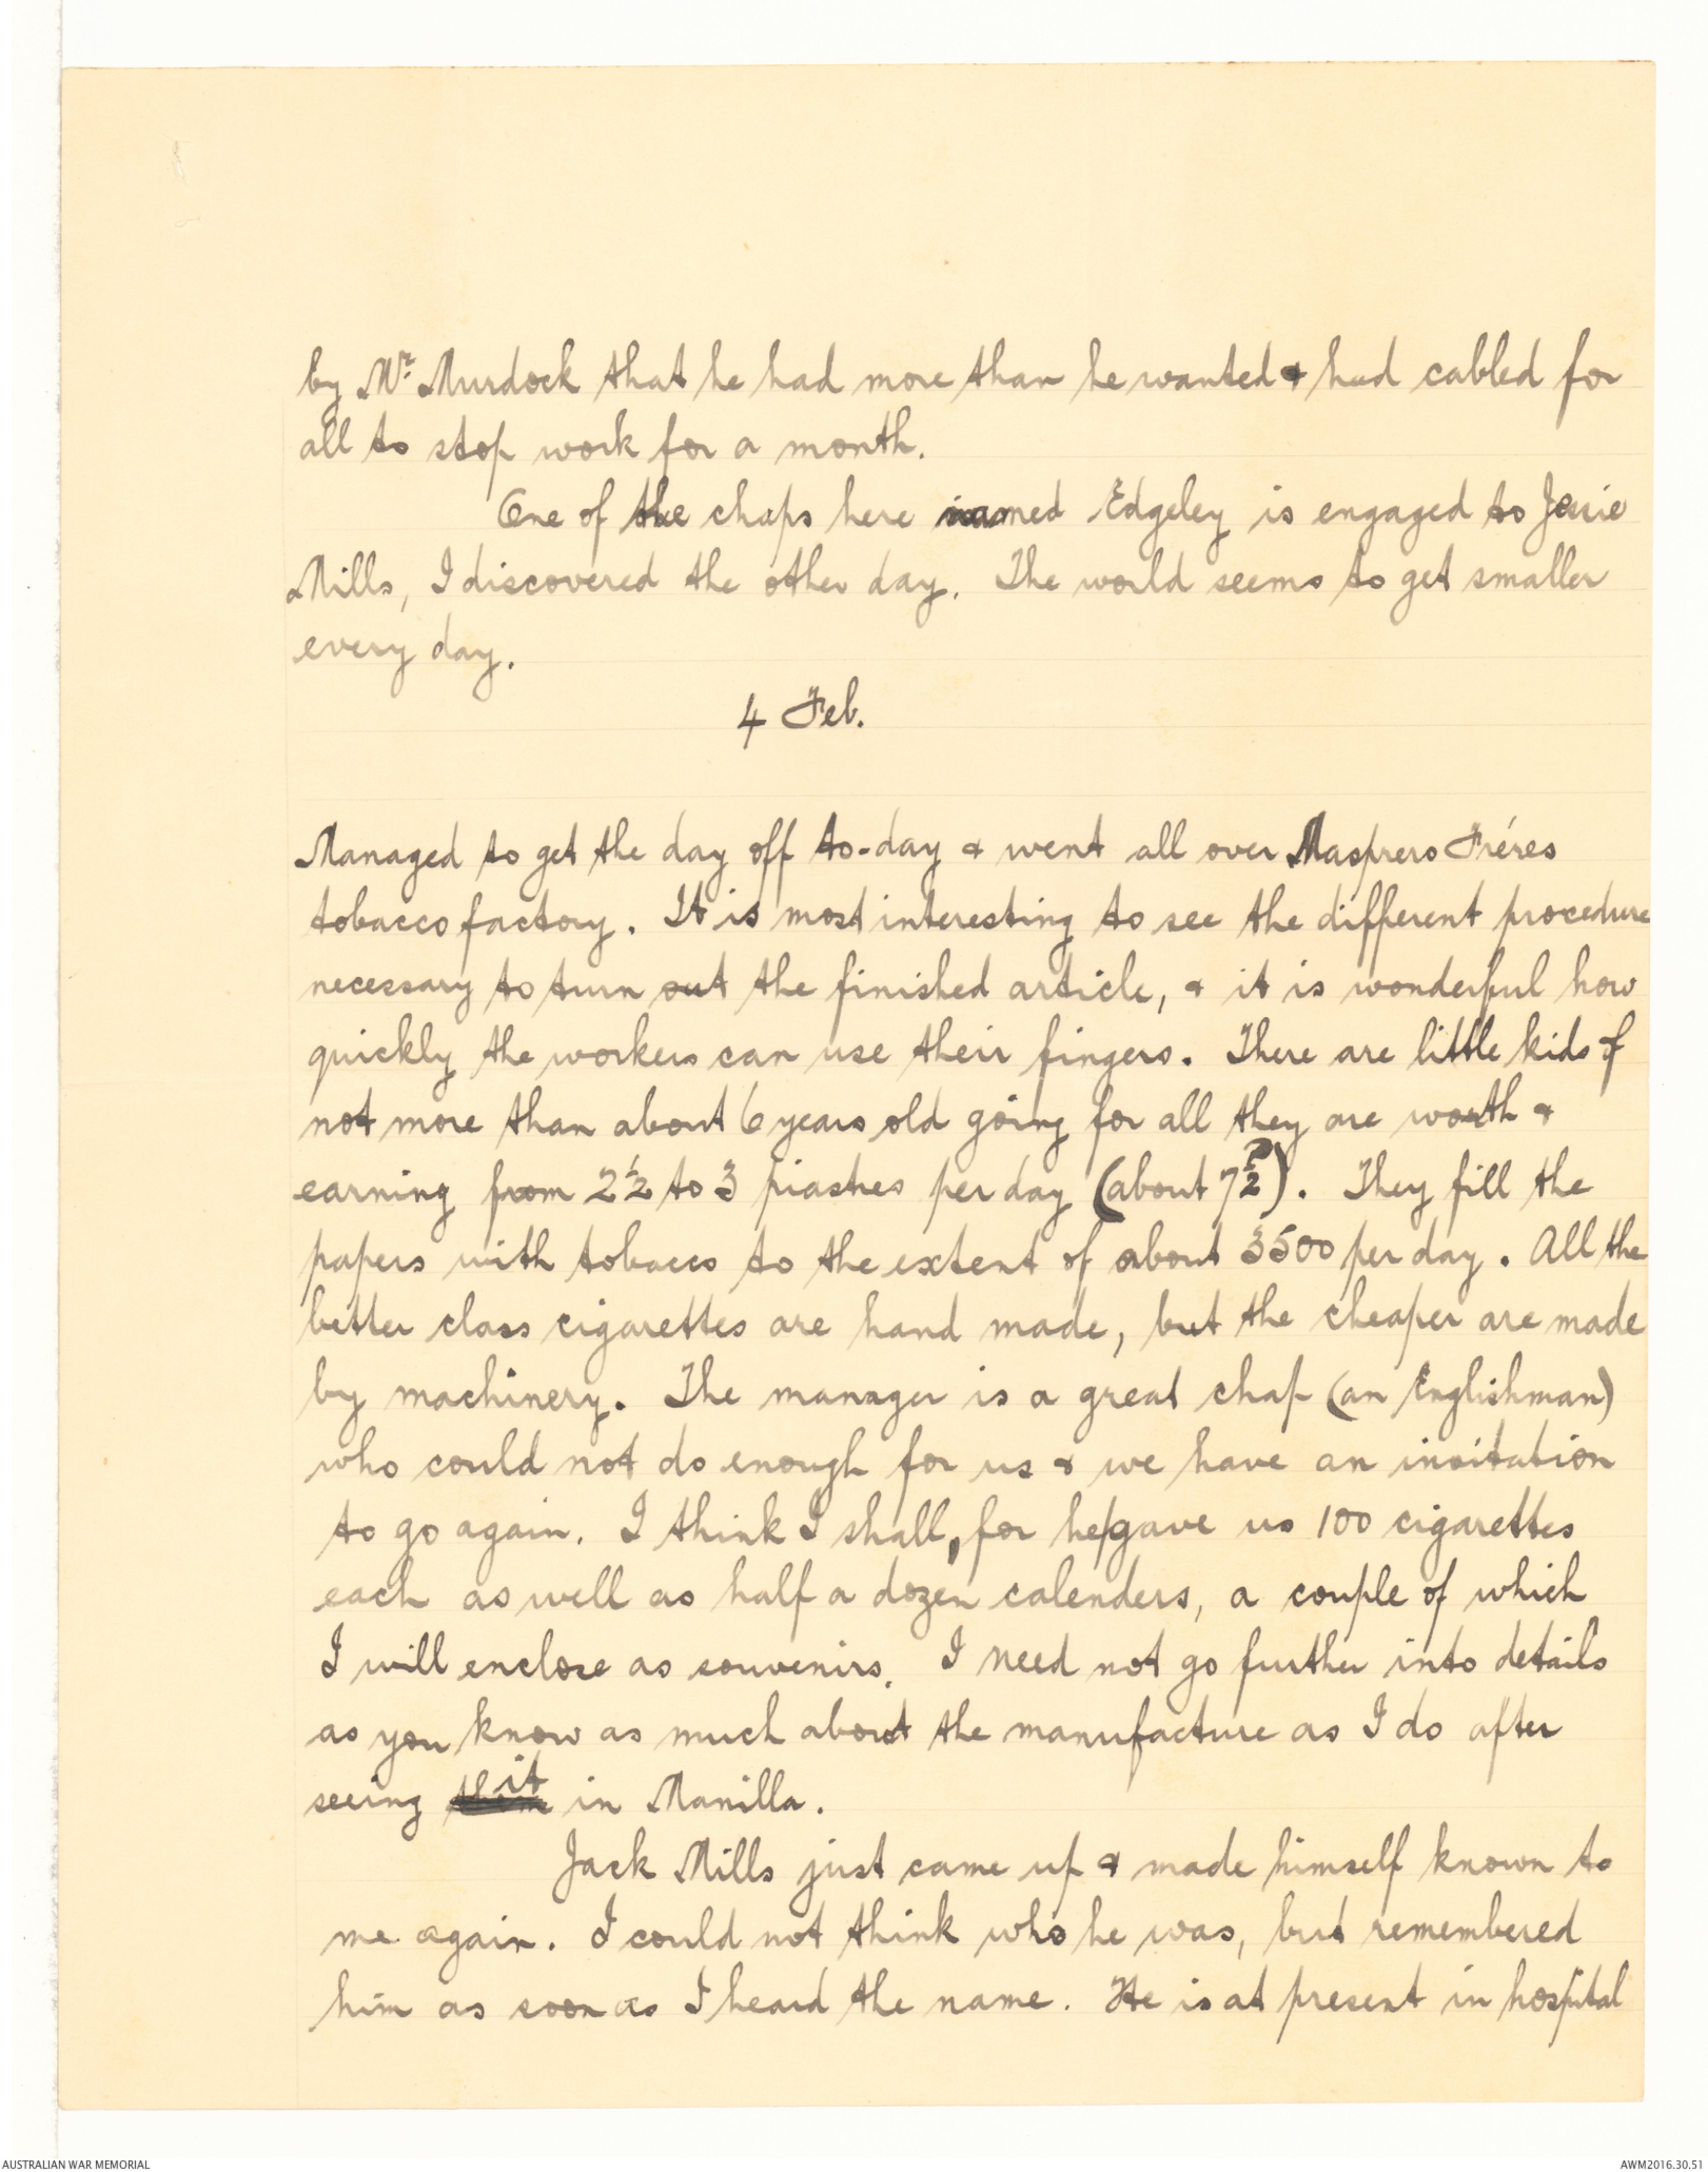 by Mr. Murdock that he had more than he wanted & had cabled for
all to stop work for a month.
One of the chaps here named Edgeley is engaged to Jessie
Mills, I discovered the other day. The world seems to get smaller
every day.
4 Feb.
Managed to get the day off to-day & went all over Masprero Fréres
tobacco factory. It is most interesting to see the different procedure
necessary to turn out the finished article, & it is wonderful how
quickly the workers can use their fingers. There are little kids of
not more than about 6 years old going for all they are worth &
earning from 2½ to 3 piastres per day (about 7½ᴰ). They fill the
papers with tobacco to the extent of about 3500 per day. All the
better class cigarettes are hand made, but the cheaper are made
by machinery. The manager is a great chap (an Englishman)
who could not do enough for us & we have an invitation
to go again. I think I shall, for he/gave us 100 cigarettes
each as well as half a dozen calenders, a couple of which
I will enclose as souvenirs. I need not go further into details
as you know as much about the manufacture as I do after
seeing it in Manilla.
Jack Mills just came up & made himself known to
me again. I could not think who he was, but remembered
him as soon as I heard the name. He is at present in hospital
AUSTRALIAN WAR MEMORIAL
AWM2016.30.51